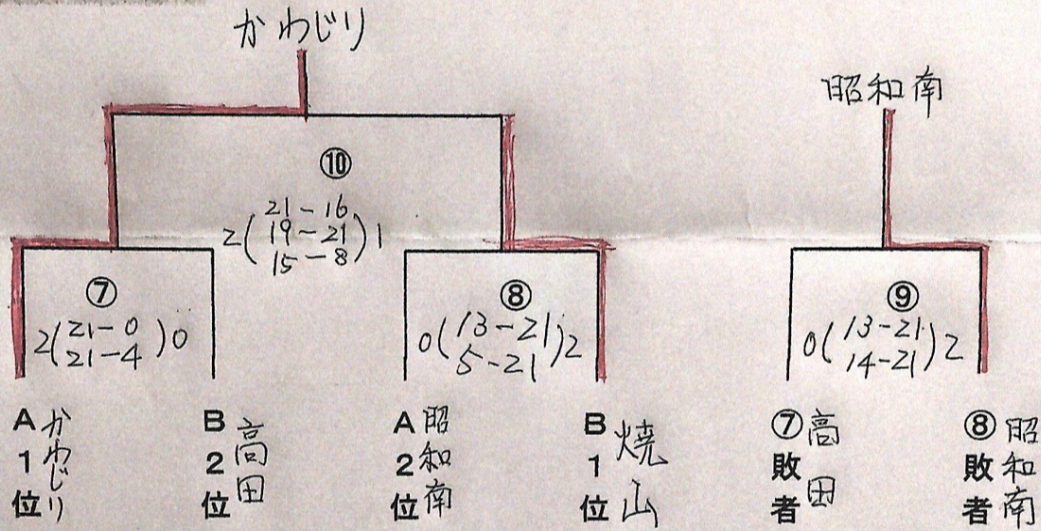 かわじり
昭和南
⑩
2(21-16
19-21
15-8)1
⑦
2(21-0
21-4)0
⑧
0(13-21
5-21)2
⑨
0(13-21
14-21)2
A1位 かわじり
B2位 高田
A2位 昭和南
B1位 焼山
⑦敗者 高田
⑧敗者 昭和南